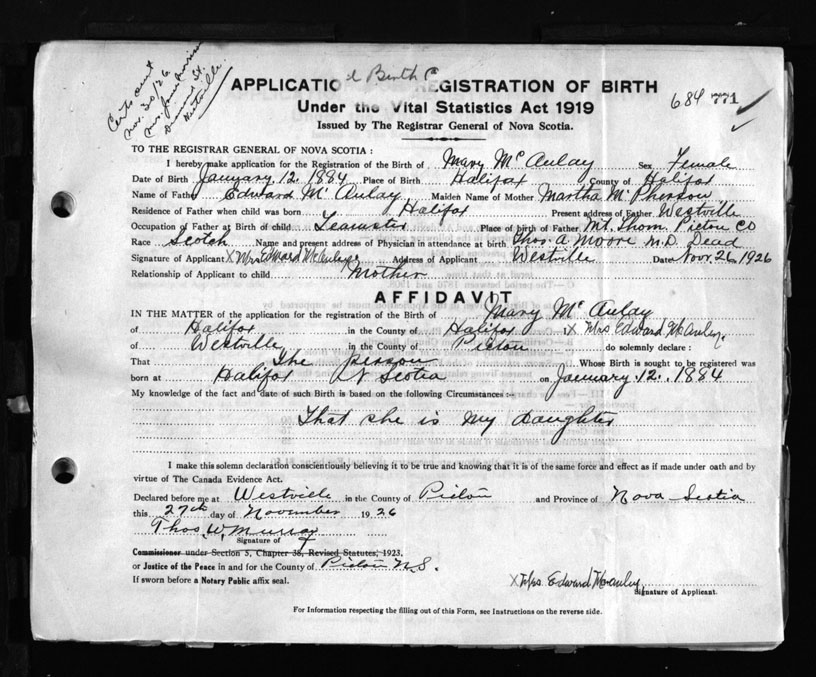 Cert sent
Nov. 30/26
Mrs. Jane Morrison
Diamond St.
Westville
d Birth C
APPLICATIO EGISTRATION OF BIRTH
684 771
Under the Vital Statistics Act 1919
Issued by The Registrar General of Nova Scotia.
TO THE REGISTRAR GENERAL OF NOVA SCOTIA :
I hereby make application for the Registration of the Birth of Mary McAulay Sex Female
Date of Birth January 12. 1884 Place of Birth Halifax County of Halifax
Name of Father Edward McAulay Maiden Name of Mother Martha McPherson
Residence of Father when child was born Halifax Present address of Father Westville
Occupation of Father at Birth of child Teamster Place of birth of Father Mt. Thom Pictou Co
Race Scotch Name and present address of Physician in attendance at birth Thos. A Moore M.D. Dead
Signature of Applicant X Mrs Edward McAulay Address of Applicant Westville Date Nov. 26, 1926
Relationship of Applicant to child Mother
AFFIDAVIT
IN THE MATTER of the application for the registration of the Birth of Mary McAulay
of Halifax in the County of Halifax X Mrs Edward McAuley.
of Westville in the County of Pictou do solemnly declare :
That The person Whose Birth is sought to be registered was
born at Halifax N Scotia on January 12. 1884
My knowledge of the fact and date of such Birth is based on the following Circumstances :-
That she is my daughter
I make this solemn declaration conscientiously believing it to be true and knowing that it is of the same force and effect as if made under oath and by
virtue of The Canada Evidence Act.
Declared before me at Westville in the County of Pictou and Province of Nova Scotia
this 27th day of November 1926
Thos. W. Murray
Signature of
Commissioner under Section 5, Chapter 38, Revised Statutes, 1923,
or Justice of the Peace in and for the County of Pictou N.S.
If sworn before a Notary Public affix seal.
X Mrs Edward McAuley
Signature of Applicant.
For Information respecting the filling out of this Form, see Instructions on the reverse side.